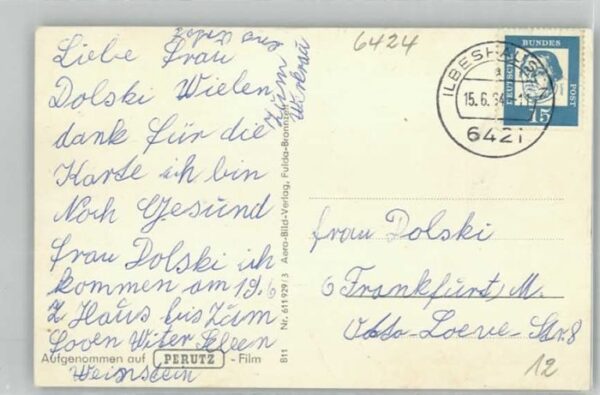 Liebe Frau
Dolski Wielen
dank für die
Karte ich bin
Noch Gesund
Frau Dolski ich
kommen am 19.6
Z Haus bis Zum
Witer
Weinstein
Zum
aus
6424
ILBESHAUSEN
15.6.64
6421
DEUTSCHE
BUNDES
POST
15
Frau Dolski
6 Frankfurt M.
Otto-Loewe-Str 8
12
Aufgenommen auf PERUTZ - Film
B11 Nr. 611 929/3 Aero-Bild-Verlag, Fulda-Bronnzell